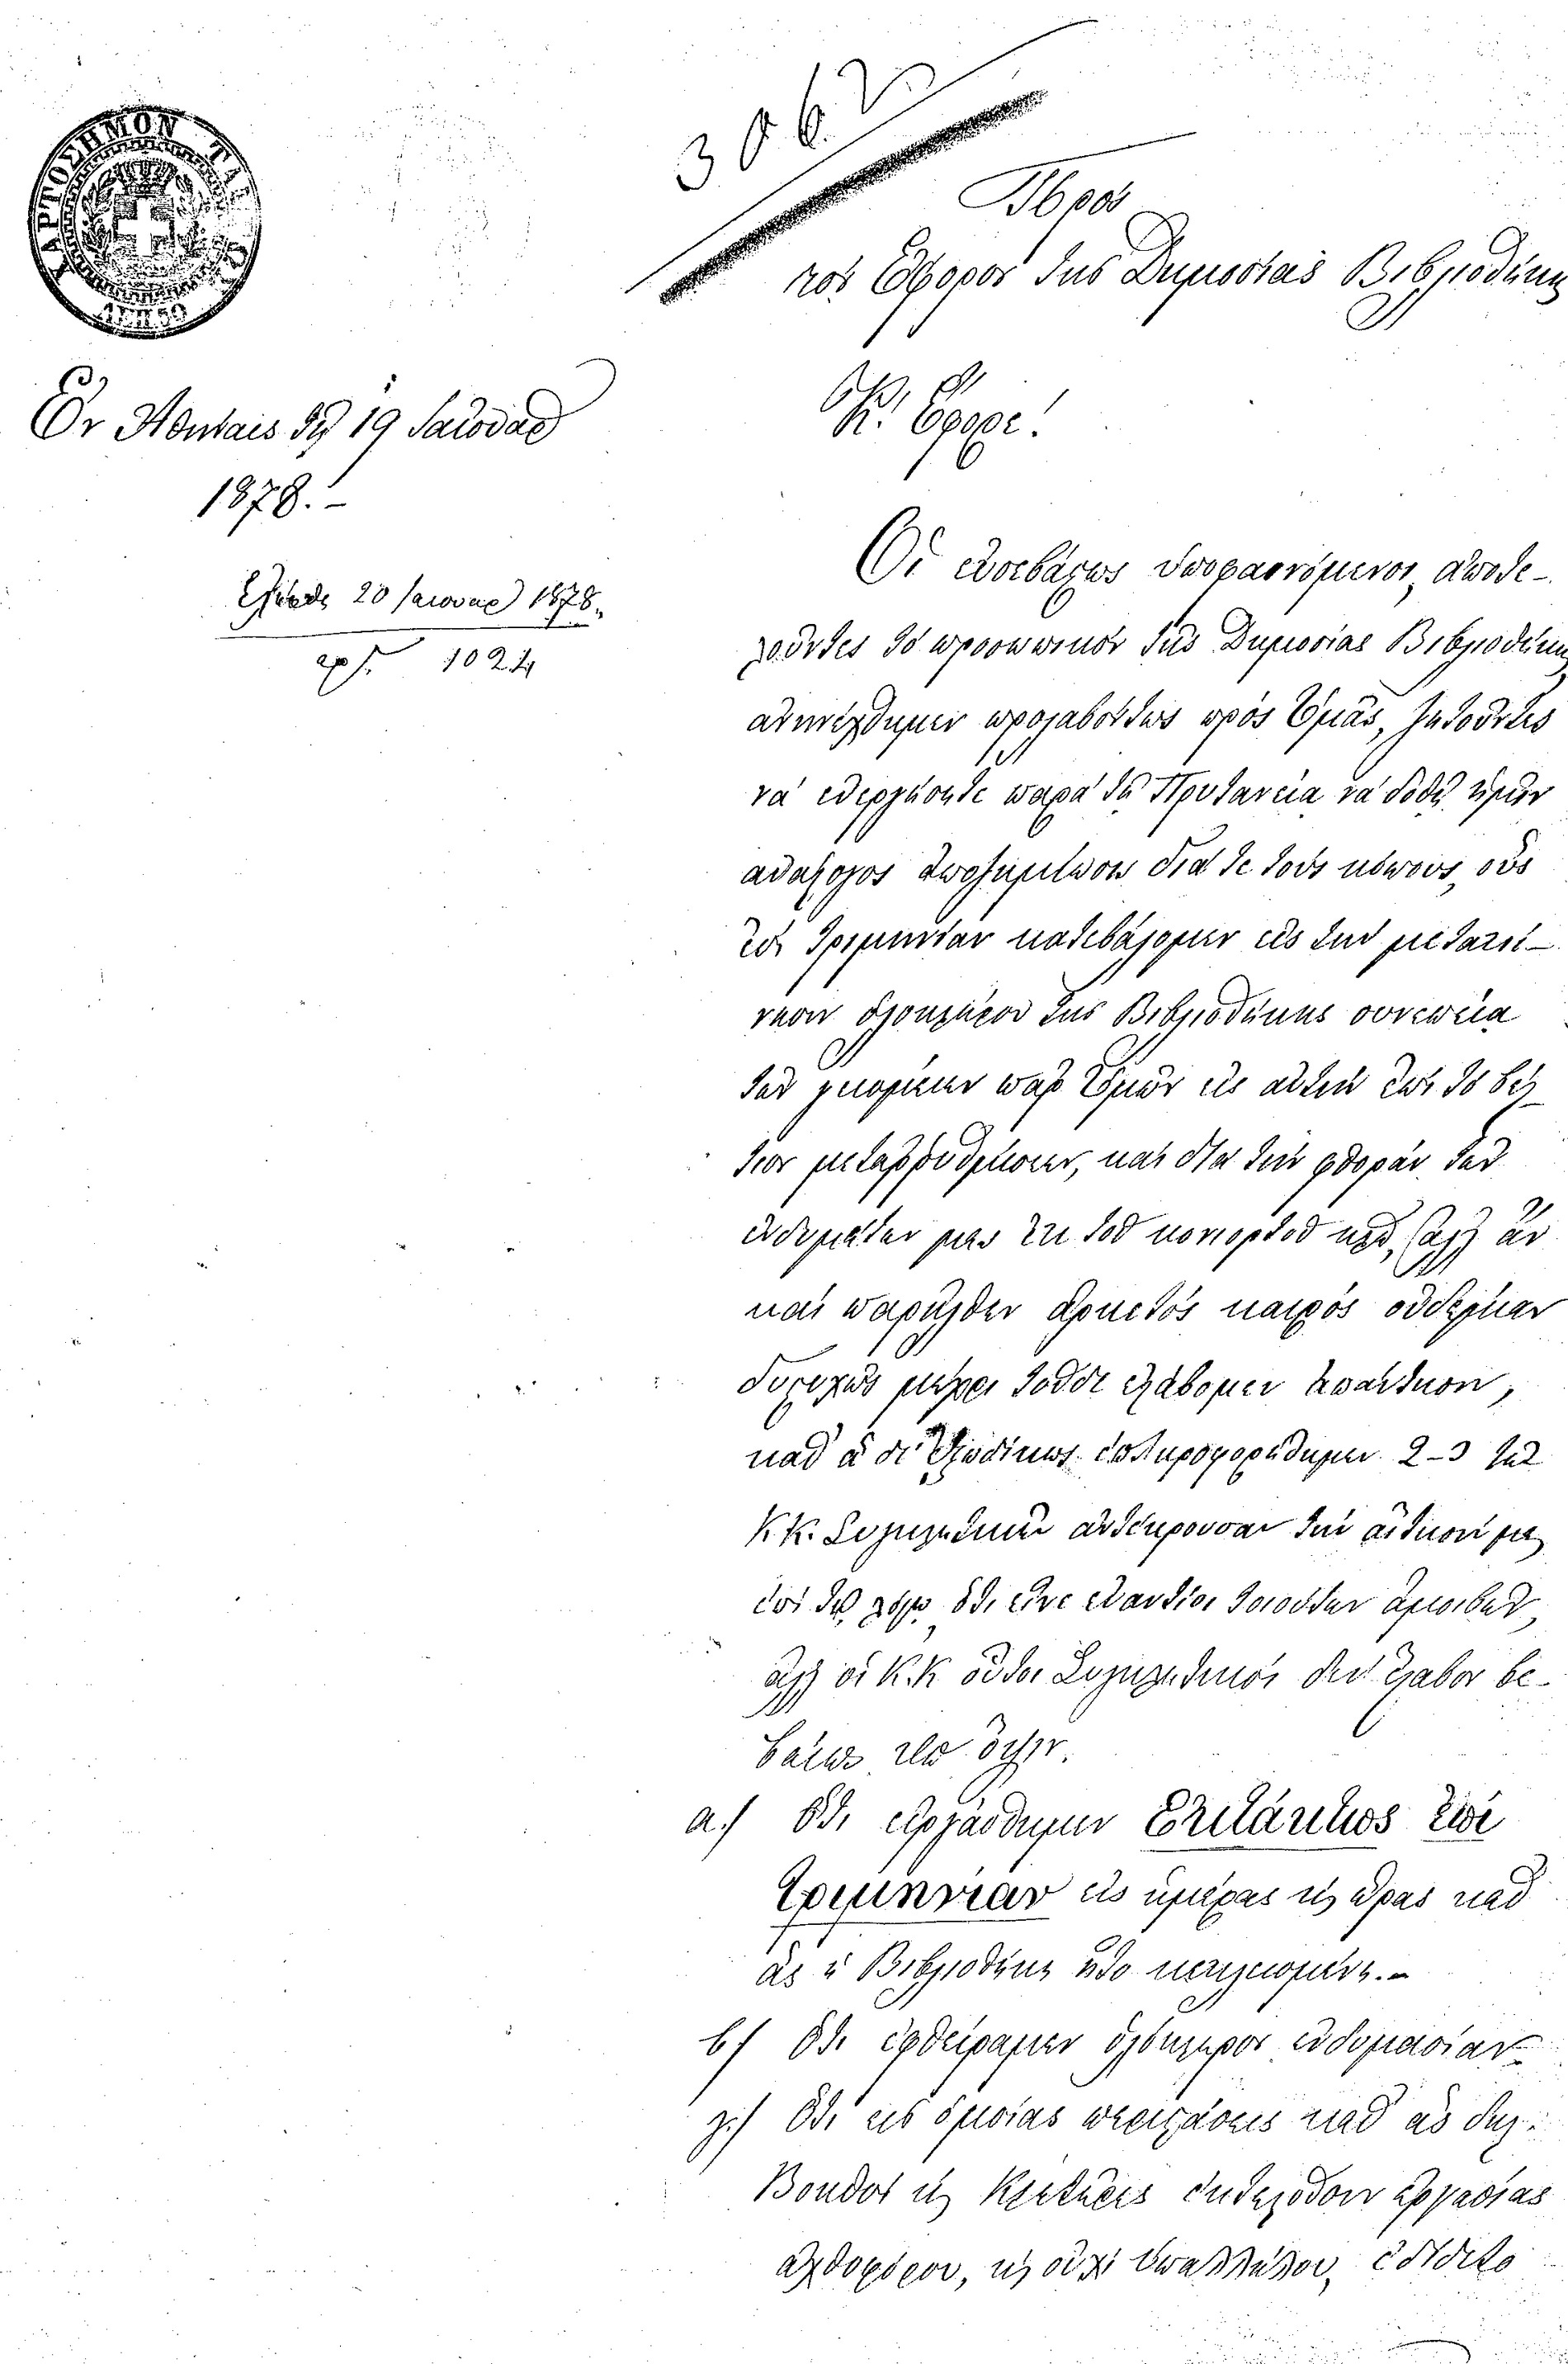 ΧΑΡΤΟΣΗΜΟΝ
ΛΕΠ 50
306
Πρὸς
τὸν Ἔφορον τῆς Δημοσίας Βιβλιοθήκης
Ἐν Ἀθήναις τῇ 19 Ἰανουαρ
1878.-
Κ. Ἔφορε!
Ἐλήφθη 20 Ἰανουαρ 1878.
αρ 1024
Οἱ εὐσεβάστως ὑποφαινόμενοι, ἀποτε-
λοῦντες τὸ προσωπικὸν τῆς Δημοσίας Βιβλιοθήκης
ἀπηυθύνθημεν προλαβόντως πρὸς Ὑμᾶς, ζητοῦντες
νὰ ἐνεργήσητε παρὰ τῇ Πρυτανείᾳ νὰ δοθῇ ἡμῖν
ἀνάλογος ἀποζημίωσις διὰ τε τοὺς κόπους, οὓς
ἐπὶ τριμηνίαν κατεβάλομεν εἰς τὴν μετακί-
νησιν ὁλοκλήρου τῆς Βιβλιοθήκης συνεπείᾳ
τῶν γενομένων παρ' Ὑμῶν εἰς αὐτὴν ἐπὶ τὸ βέλ-
τιον μεταῤῥυθμίσεων, καὶ διὰ τὴν φθορὰν τῶν
ἐνδυμάτων μας ἐκ τοῦ κονιορτοῦ κτλ, ἀλλ' ἂν
καὶ παρῆλθεν ἀρκετὸς καιρὸς οὐδεμίαν
δυστυχῶς μέχρι τοῦδε ἐλάβομεν ἀπάντησιν,
καθ' ἃ δὲ ἐξωδίκως ἐπληροφορήθημεν 2-3 τῶν
Κ.Κ. Συγκλητικῶν ἀντέκρουσαν τὴν αἴτησίν μας
ἐπὶ τῷ λόγῳ ὅτι εἶνε ἐναντίοι τοιούτων ἀμοιβῶν,
ἀλλ' οἱ Κ.Κ οὗτοι Συγκλητικοὶ δὲν ἔλαβον βε-
βαίως ὑπ' ὄψιν.
α./ Ὅτι εἰργάσθημεν ἐκτάκτως ἐπὶ
τριμηνίαν εἰς ἡμέρας κ ὥρας καθ'
ἃς ἡ Βιβλιοθήκη ἦτο κεκλεισμένη.-
β/ Ὅτι ἐφθείραμεν ὁλόκληρον ἐνδυμασίαν
γ./ Ὅτι εἰς ὁμοίας περιστάσεις καθ' ἃς
Βοηθοὶ κ Κλητῆρες ἐξετέλεσαν ἐργασίας
ἀχθοφόρου, κ οὐχὶ ὑπαλλήλου, ἐδίδετο